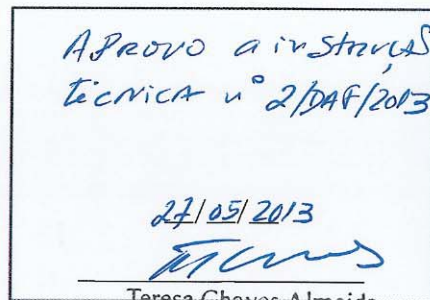 APROVO a instrução
técnica nº 2/DAF/2013
27/05/2013
Teresa Chaves Almeida